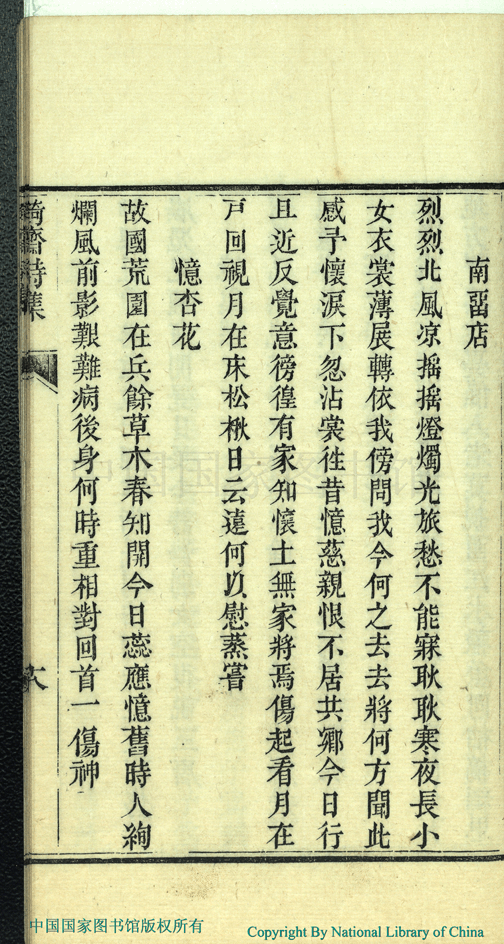 南畱店
烈烈北風凉揺揺燈燭光旅愁不能寐耿耿寒夜長小
女衣裳薄展轉依我傍問我今何之去去將何方聞此
感予懷淚下忽沾裳徃昔憶慈親恨不居共鄉今日行
且近反覺意徬徨有家知懷土無家將焉傷起看月在
戸回視月在床松楸日云遠何以慰蒸嘗
憶杏花
故國荒園在兵餘草木春知開今日蕊應憶舊時人絢
爛風前影艱難病後身何時重相對回首一傷神
齋詩集
八
中国国家图书馆
中国国家图书馆版权所有
Copyright By National Library of China